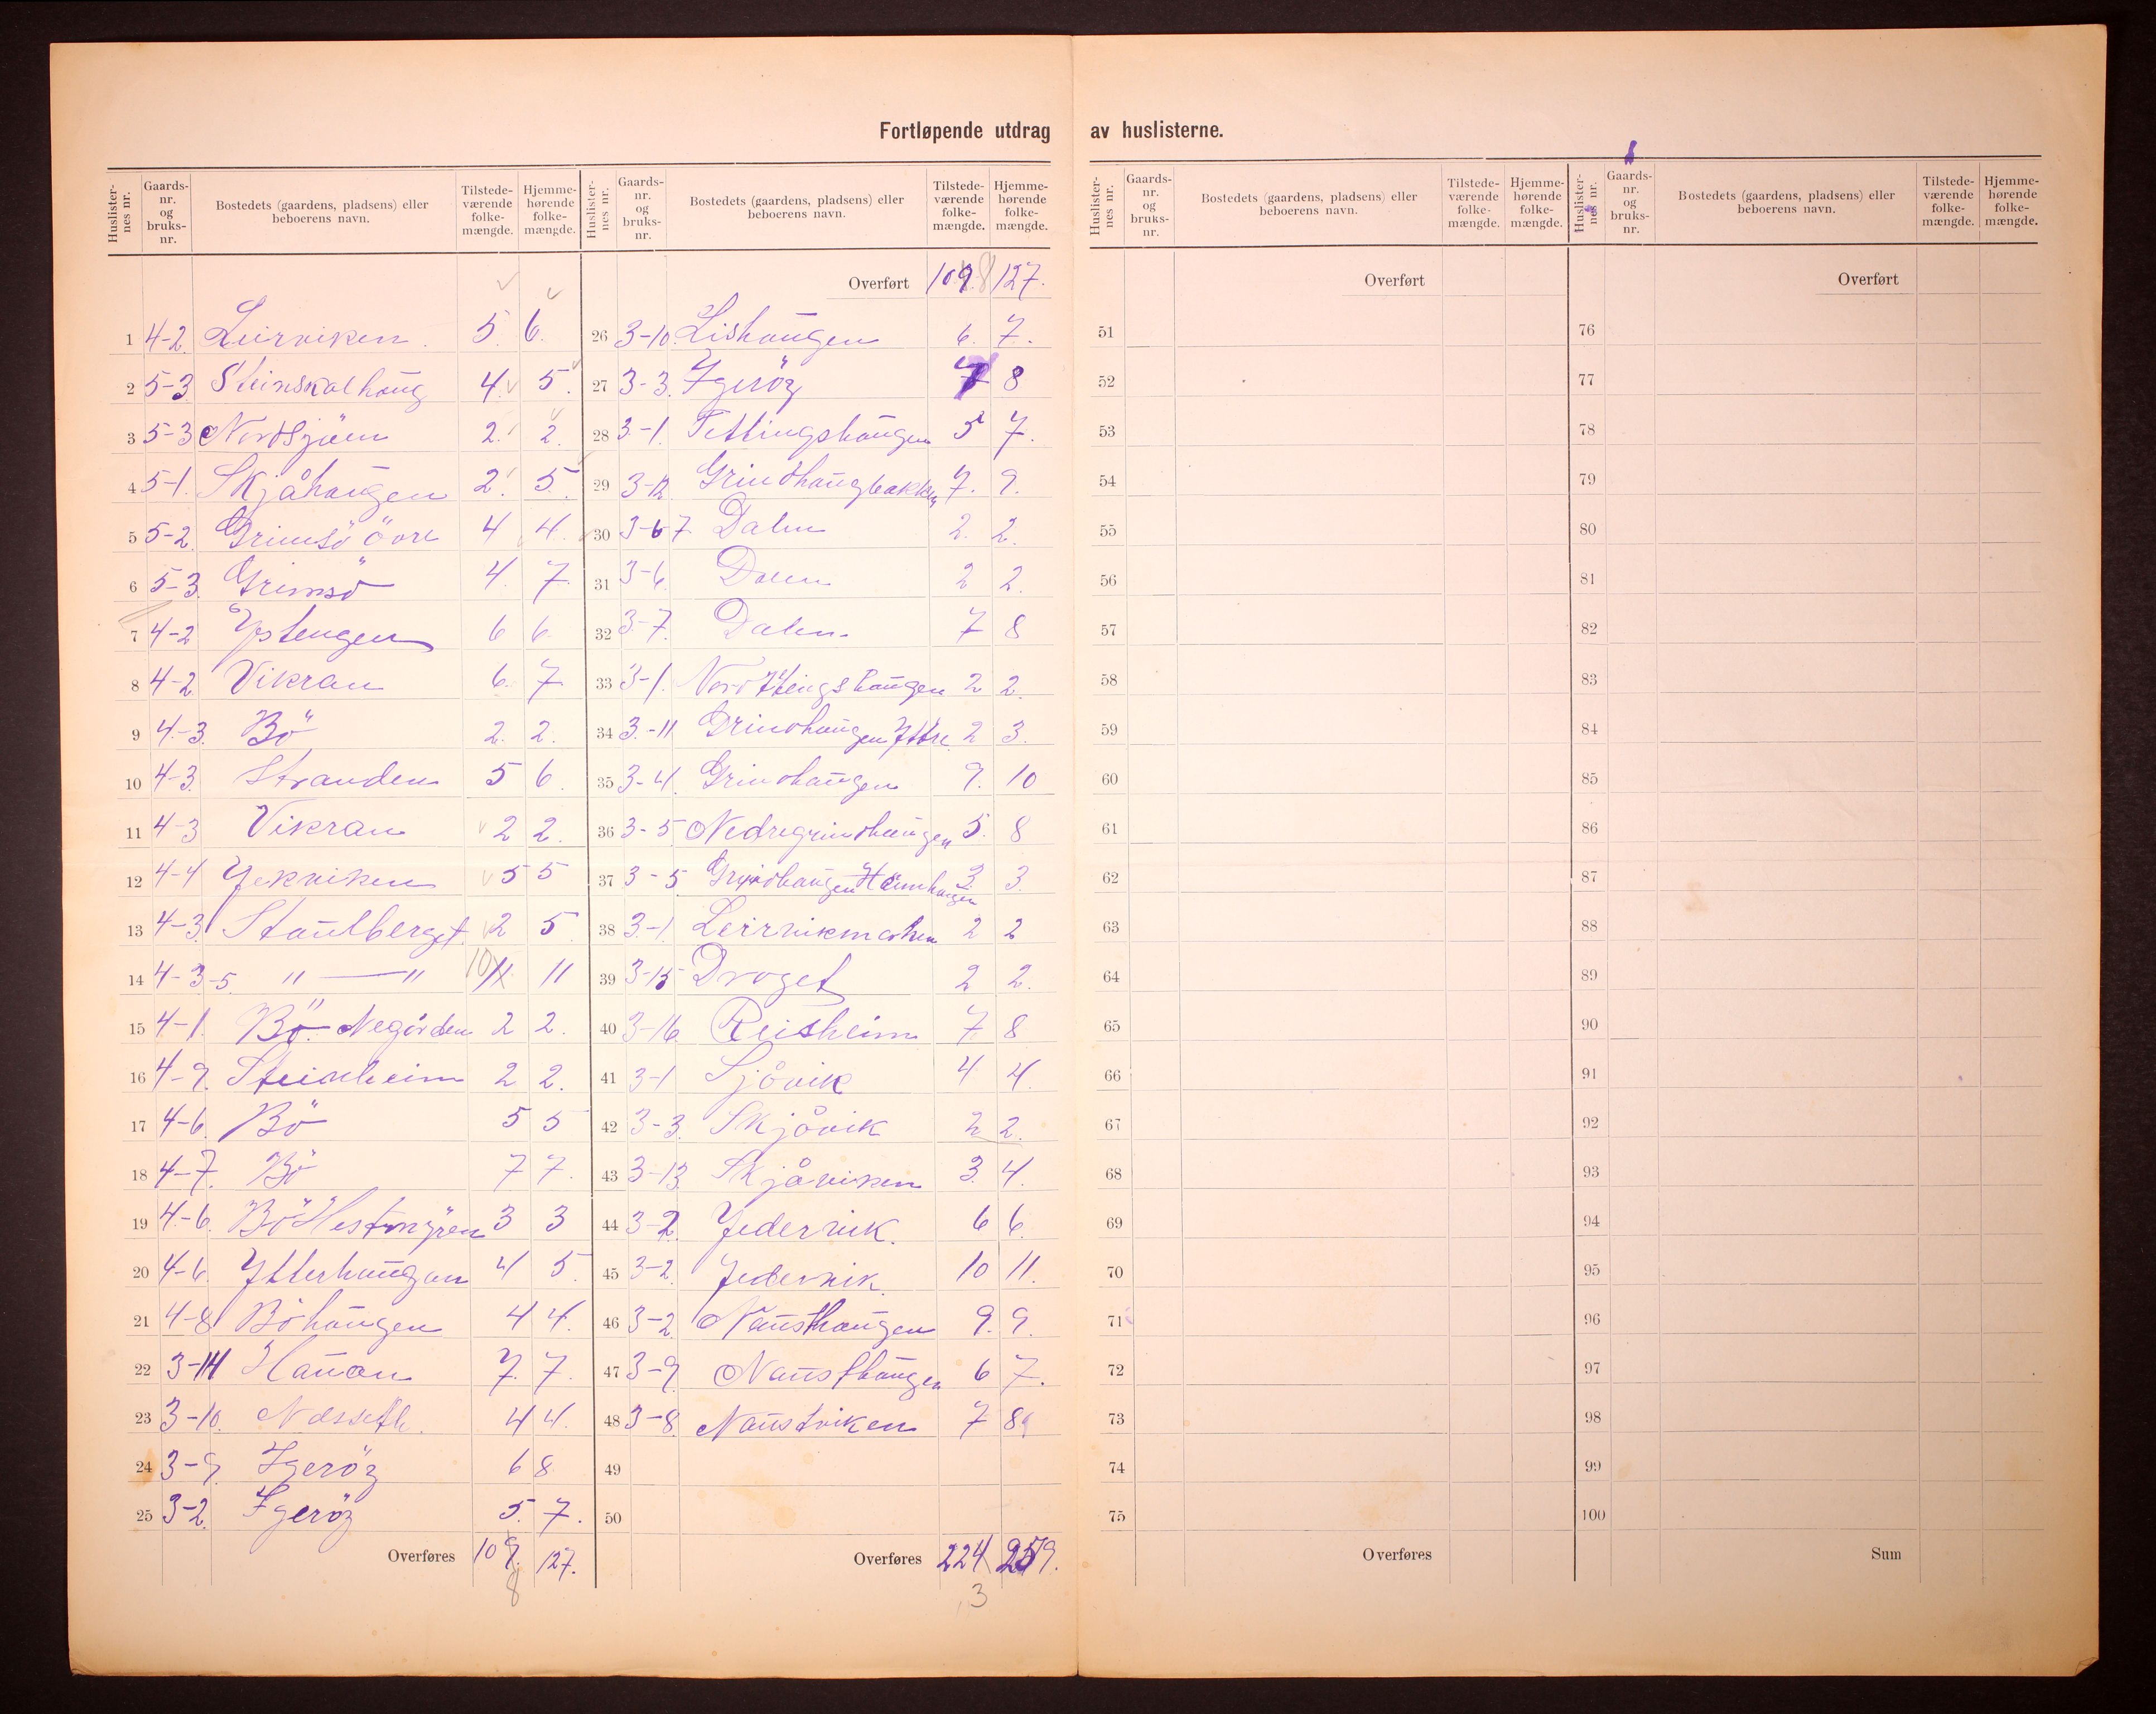 Fortløpende utdrag av huslisterne.
Huslister-nes nr. Gaards-nr. og bruks-nr. Bostedets (gaardens, pladsens) eller beboerens navn. Tilstede-værende folke-mængde. Hjemme-hørende folke-mængde.
1 4-2. Leirviken. 5. 6.
2 5-3 Steinskalhaug 4. 5.
3 5-3 Nordsjöen 2. 2.
4 5-1. Skjåhaugen 2. 5.
5 5-2. Grimsö övre 4 4.
6 5-3. Grimsö 4. 7.
7 4-2 Ystengen 6 6.
8 4-2 Vikran 6. 7.
9 4-3. Bö 2. 2.
10 4-3. Stranden 5 6.
11 4-3 Vikran 2 2.
12 4-4 Jekviken 5 5
13 4-3. Staulberget 2 5.
14 4-3-5. " — " 10 11 11
15 4-1. Bö-Negården 2 2.
16 4-9. Steinheim 2 2.
17 4-6. Bö 5 5
18 4-7. Bö 7 7.
19 4-6. Bö Hestmyren 3 3
20 4-6. Ytterhaugan 4 5.
21 4-8 Böhaugen 4 4.
22 3-14 Hauan 7. 7.
23 3-10. Næsseth. 4 4.
24 3-9. Igeröy 6 8.
25 3-2. Igeröy 5. 7.
Overføres 109. 127.
8
Huslister-nes nr. Gaards-nr. og bruks-nr. Bostedets (gaardens, pladsens) eller beboerens navn. Tilstede-værende folke-mængde. Hjemme-hørende folke-mængde.
Overført 109. 8 127.
26 3-10. Lishaugen 6. 7.
27 3-3. Igeröy 7 8
28 3-1. Tettingshaugen 5 7.
29 3-12. Grindhaugbakken 7. 9.
30 3-6 7 Dalen 2. 2.
31 3-6 Dalen 2 2.
32 3-7. Dalen. 7 8
33 3-1. 2 2.
34 3-11 Grindhaugen Yttre. 2 3.
35 3-4. Grindhaugen 9. 10
36 3-5 Nedregrindhaugen 5. 8
37 3-5. Grindhaugen 3. 3.
38 3-1. Leirvikmarken 2 2
39 3-15 Droget 2 2.
40 3-16 Reisheim 7. 8
41 3-1 Sjövik 4 4.
42 3-3. Skjåvik 2 2.
43 3-13. Skjåviken 3. 4.
44 3-2. Jedervik. 6 6.
45 3-2. Jedervik. 10 11.
46 3-2 Nausthaugen 9. 9.
47 3-9 Nausthaugen 6 7.
48 3-8. Naustviken 7 8
49
50
Overføres 224 259.
3
Huslister-nes nr. Gaards-nr. og bruks-nr. Bostedets (gaardens, pladsens) eller beboerens navn. Tilstede-værende folke-mængde. Hjemme-hørende folke-mængde.
Overført
51
52
53
54
55
56
57
58
59
60
61
62
63
64
65
66
67
68
69
70
71
72
73
74
75
Overføres
Huslister-nes nr. Gaards-nr. og bruks-nr. Bostedets (gaardens, pladsens) eller beboerens navn. Tilstede-værende folke-mængde. Hjemme-hørende folke-mængde.
Overført
76
77
78
79
80
81
82
83
84
85
86
87
88
89
90
91
92
93
94
95
96
97
98
99
100
Sum